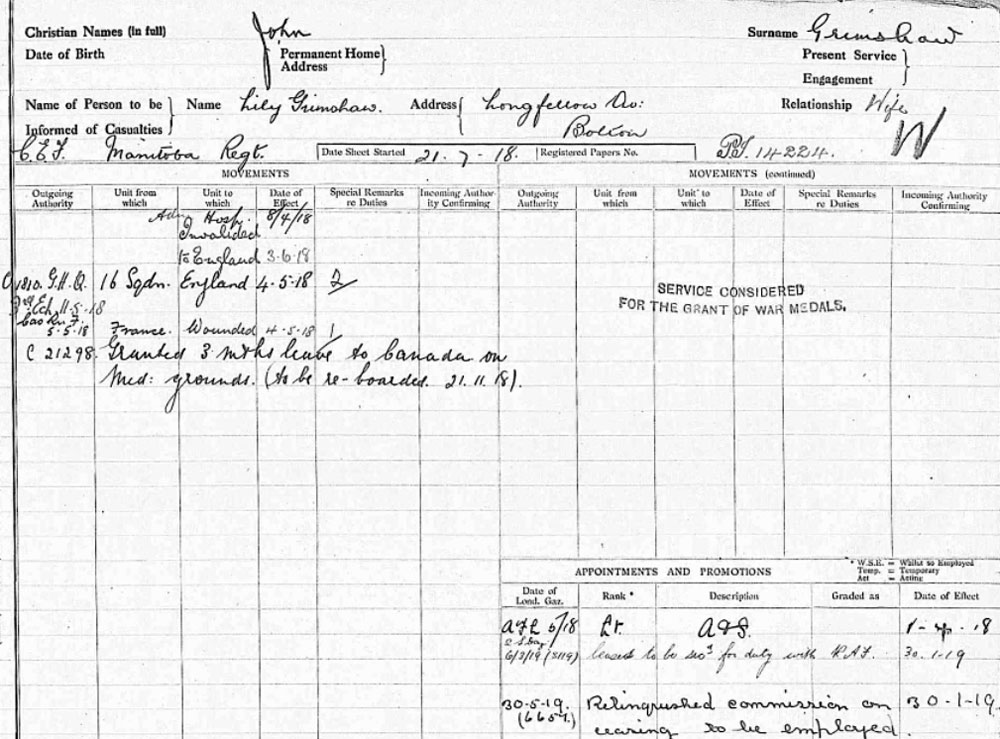 Christian Names (in full) John Surname Grimshaw
Date of Birth Permanent Home Address Present Service
Engagement
Name of Person to be Informed of Casualties Name Lily Grimshaw. Address Longfellow Av: Relationship Wife
Bolton
C.E.F. Manitoba Regt. Date Sheet Started 21.7-18. Registered Papers No. P/S. 14224. W
MOVEMENTS MOVEMENTS (continued)
Outgoing Authority Unit from which Unit to which Date of Effect Special Remarks re Duties Incoming Authority Confirming Outgoing Authority Unit from which Unit to which Date of Effect Special Remarks re Duties Incoming Authority Confirming
Hosp. 8/4/18
Invalided
to England 3-6-18
G.H.Q. 16 Sqdn. England 4-5-18 2
11-5-18
5-5-18 France. Wounded 4-5-18 1
C 21298. Granted 3 mths leave to Canada on
Med: grounds. (to be re-boarded. 21.11.18).
SERVICE CONSIDERED
FOR THE GRANT OF WAR MEDALS.
APPOINTMENTS AND PROMOTIONS
* W.S.E. = Whilst so Employed
Temp. = Temporary
Act = Acting
Date of Lond. Gaz. Rank * Description Graded as Date of Effect
AFL 5/18 Lt. A&S. 1-ap-18
6/3/19 (3119) to be for duty with R.A.F. 30.1-19
30-5-19. Relinquished commission on 30-1-19
(6657.) ceasing to be employed.